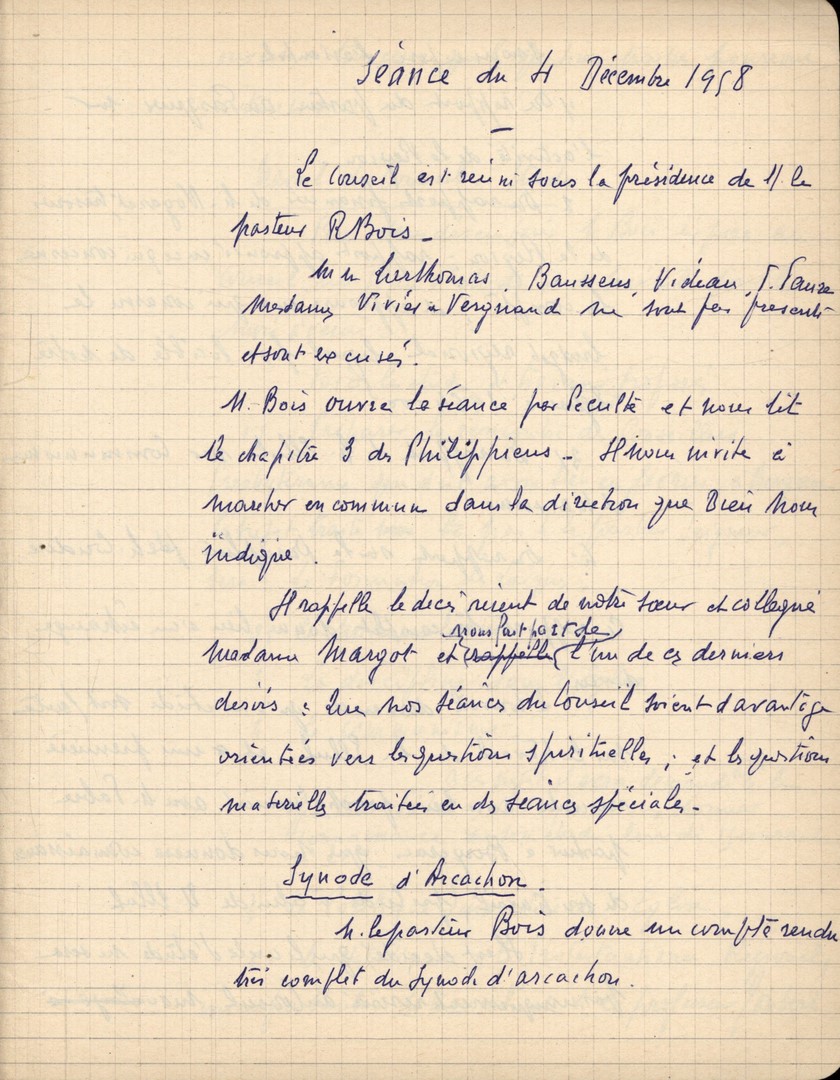 Séance du 4 Décembre 1958
Le Conseil est réuni sous la présidence de M. le
pasteur R Bois_
M m Lerthomas, Baussens, Videau,
Madame Vivier Vergnaud ne sont pas présents
et sont excusés.
M. Bois ouvre la séance par l'eculté et nous lit
le chapitre 3 des Philippiens_ Il nous invite à
marcher en commun dans la direction que Dieu nous
indique.
Il rappelle le décès récent de notre sœur et collegue
nous fait part de
Madame Margot et rappelle l'un de ces derniers
desirs : Que nos séances du Conseil soient d'avantage
orientées vers les questions spirituelles ; et les questions
materielles traitées en des séances spéciales_
Synode d'Arcachon.
M. le pasteur Bois donne un compte rendu
très complet du Synode d'arcachon.